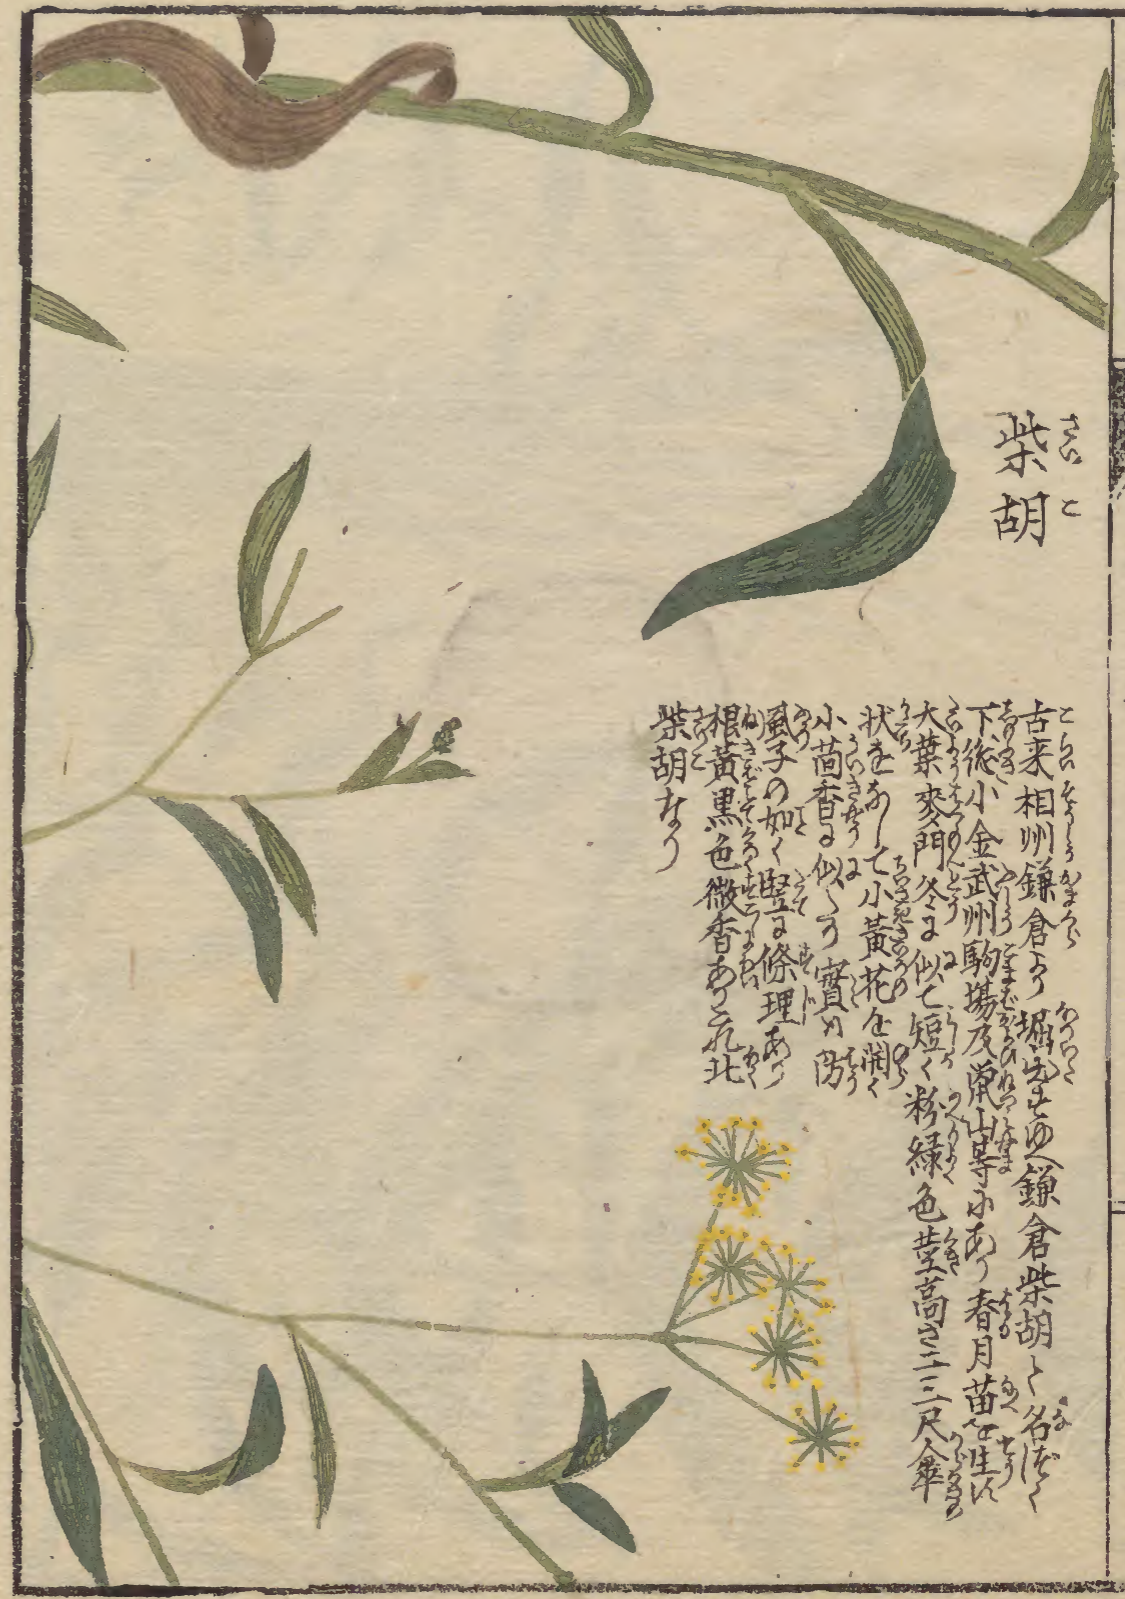 柴胡
古来相州鎌倉より堀出すゆへ鎌倉柴胡と名づく
下総小金武州駒場及嵐山等にあり春月苗を生ず
大葉麥門冬に似て短く粉緑色莖高さ二三尺傘
状をなして小黄花を開く
小茴香に似たり實は防
風子の如く竪に條理あり
根黄黒色微香あり
柴胡なり